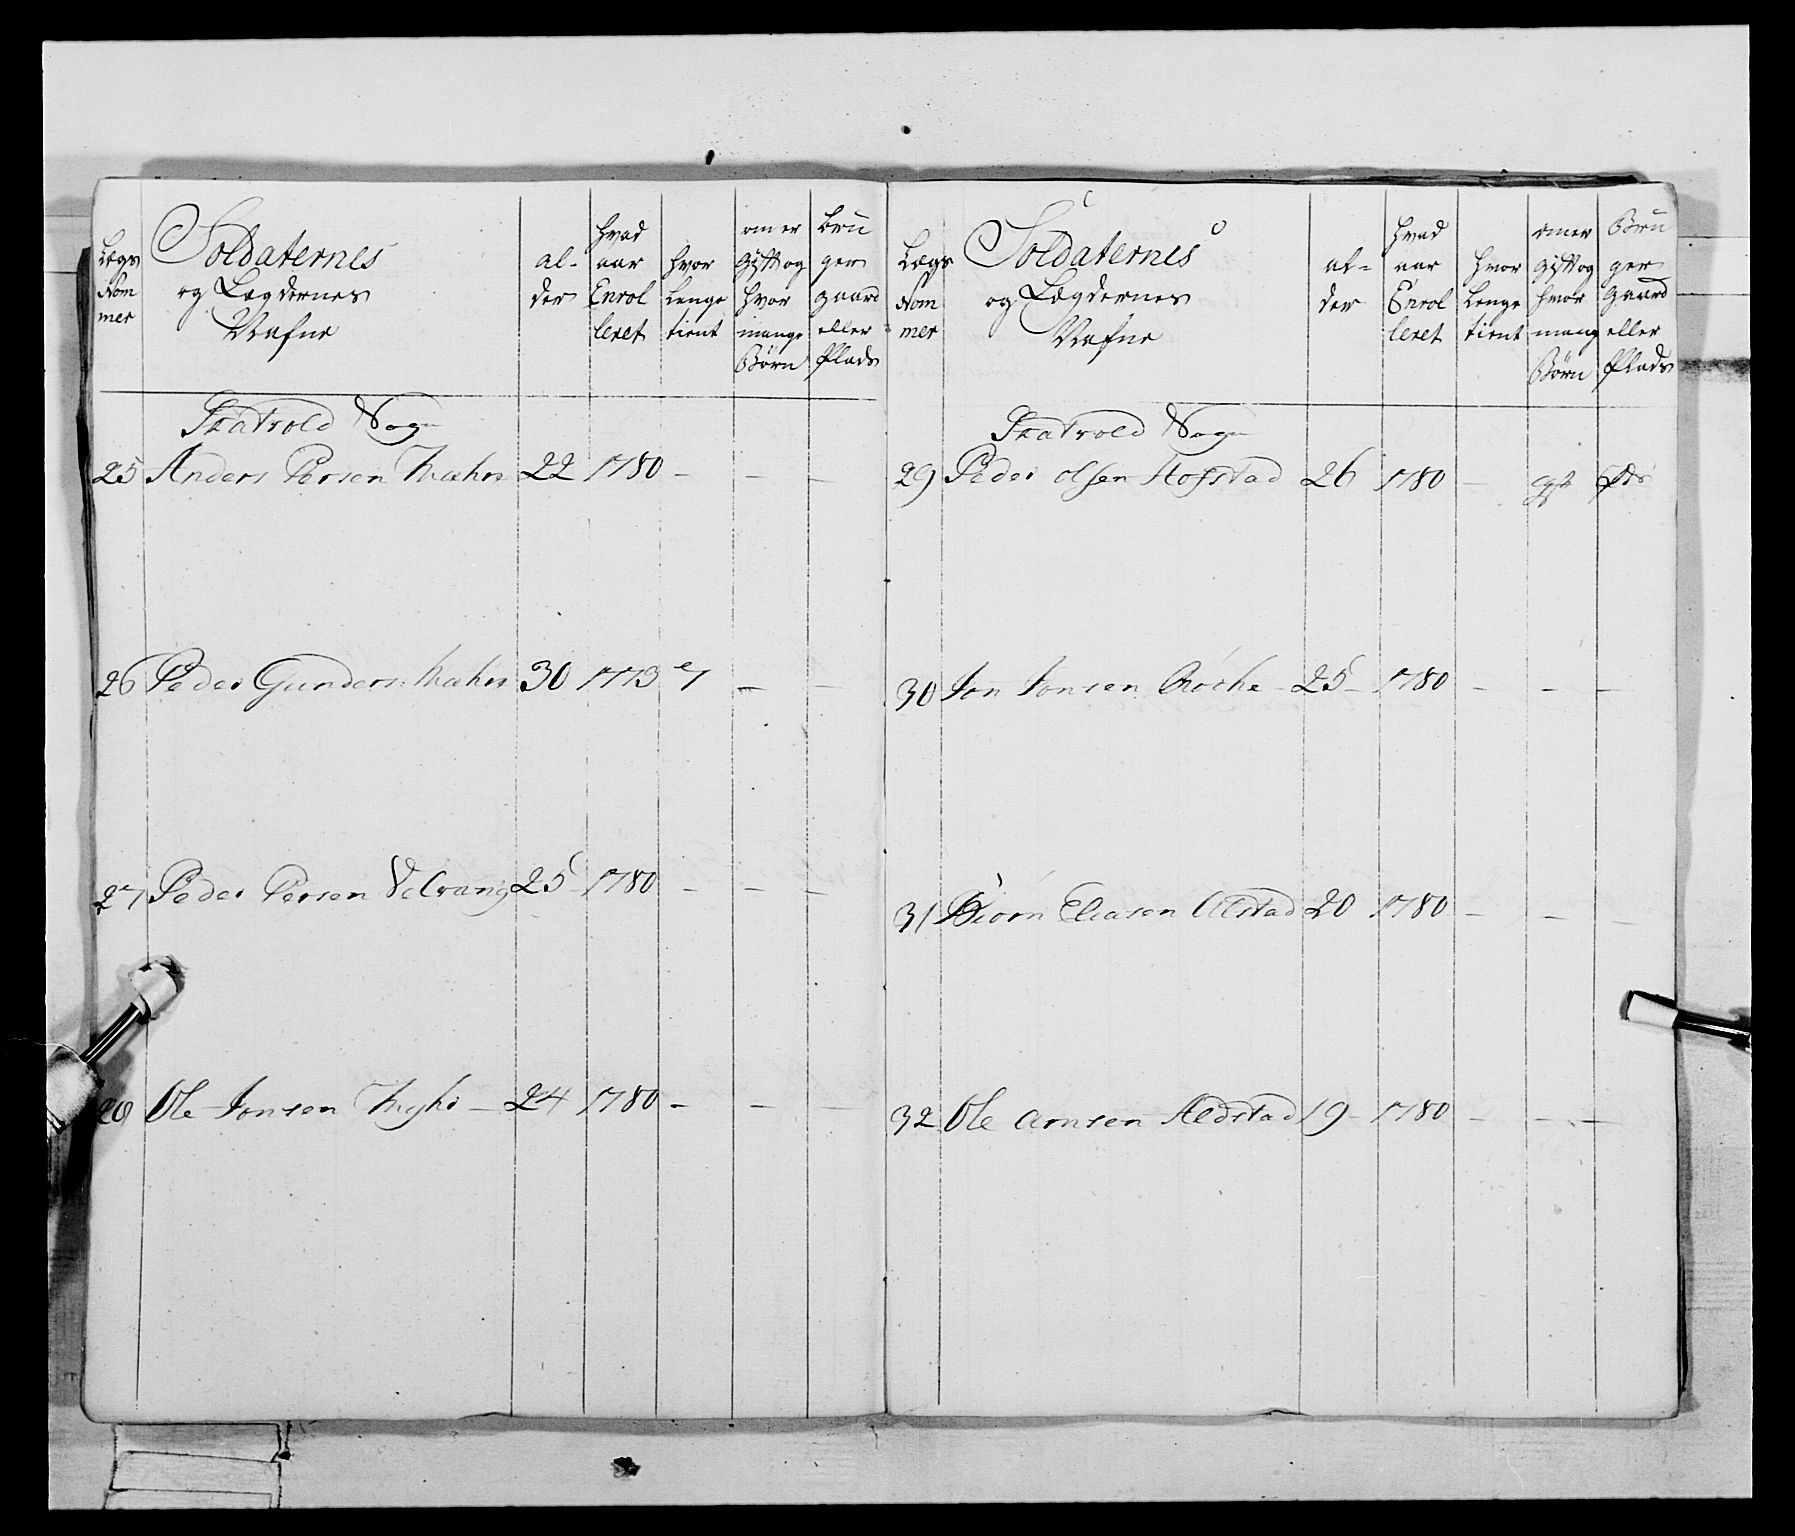 Lægs Nom mer
Soldaternes og Lægdernes Nafne
al- der
hvad aar Enrol leret
hvor lenge tient
om er gift og hvor mange Børn
bru ger gaard eller Plads
Skatvold Sogn
25 Anders Persen 22 1780 - - -
26 Peder Gunders: 30 1773 7 - -
27 Peder Persen Velvang 25 - 1780 - - -
28 Ole Jonsen - 24 1780 - - -
Lægs Nom mer
Soldaternes og Lægdernes Nafne
al- der
hvad aar Enrol leret
hvor lenge tient
om er gift og hvor mang Børn
Bru ger Gaard eller Plads
Skatvold Sogn
29 Peder olsen Hofstad 26 1780 - gft
30 Jon Jonsen Røcke - 25 - 1780 - - -
31 Biørn Eliasen Alstad 20 1780 - - -
32 Ole Arnsen Aldstad 19 - 1780 - - -